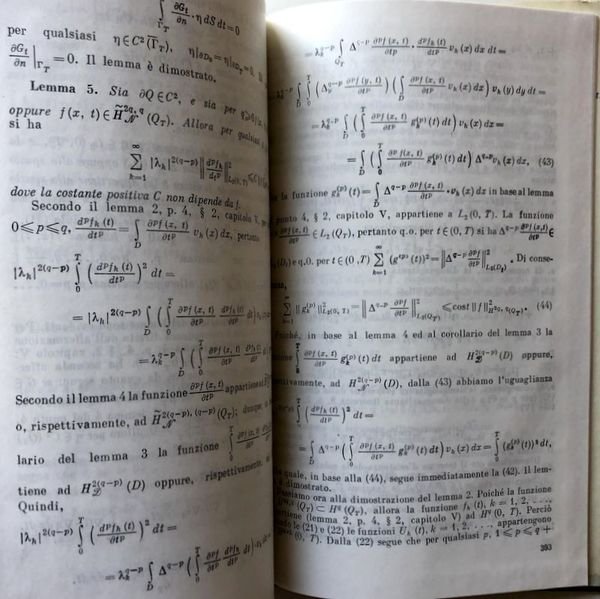 ∫_{Γ_T} ∂G_t/∂n · η dS dt = 0
per qualsiasi η ∈ C²(Γ̄_T), η|_{∂D_0} = η|
∂G_t/∂n |_{Γ_T} = 0. Il lemma è dimostrato.
Lemma 5. Sia ∂Q ∈ C², e sia per q
oppure f(x, t) ∈ H̃_𝒩^{2q, q}(Q_T). Allora per qualsiasi
si ha
∑_{k=1}^{∞} |λ_k|^{2(q-p)} ‖ d^p f_k / d_t^p ‖²_{L_2(0, T)} ≤ C ‖
dove la costante positiva C non dipende da f.
Secondo il lemma 2, p. 4, § 2, capitolo V, per
0 ≤ p ≤ q, d^p f_k(t)/dt^p = ∫_D ∂^p f(x, t)/∂t^p v_k(x) dx, pertanto
|λ_k|^{2(q-p)} ∫_0^T (d^p f_k(t)/dt^p)² dt =
= |λ_k|^{2(q-p)} ∫_D (∫_0^T ∂^p f(x, t)/∂t^p d^p f_k/dt^p dt)
= λ_k^{q-p} ∫_D (∫_0^T ∂^p f(x, t)/∂t^p d^p f_k
Secondo il lemma 4 la funzione ∂^p f(x, t)/∂t^p appartiene ad
o, rispettivamente, ad H̃_𝒩^{2(q-p), (q-p)}(Q_T); dunque,
lario del lemma 3 la funzione ∫_0^T ∂^p f(x, t)/∂t^p
tiene ad H_𝒟^{2(q-p)}(D) oppure, rispettivamente,
Quindi,
|λ_k|^{2(q-p)} ∫_0^T (d^p f_k(t)/dt^p)² dt =
= λ_k^{q-p} ∫_D Δ^{q-p} (∫_0^T ∂^p f/∂t^p d^p f_k/dt^p dt)
= λ_k^{q-p} ∫_{Q_T} Δ^{q-p} ∂^p f(x, t)/∂t^p · d^p f_k(t)/dt^p v_k(x) dx dt =
∫_D ∫_0^T (Δ_y^{q-p} ∂^p f(y, t)/∂t^p) (∫_D ∂^p f(x, t)/∂t^p v_k(x) dx) v_k(y) dy dt =
= λ_k^{q-p} ∫_D (∫_0^T ∂^p f(x, t)/∂t^p g_k^{(p)}(t) dt) v_k(x) dx =
= ∫_D (∫_0^T ∂^p f(x, t)/∂t^p g_k^{(p)}(t) dt) Δ^{q-p} v_k(x) dx, (43)
la funzione g_k^{(p)}(t) = ∫_D Δ^{q-p} ∂^p f(x, t)/∂t^p · v_k(x) dx in base al lemma
punto 4, § 2, capitolo V, appartiene a L_2(0, T). La funzione
∂^p f(x, t)/∂t^p ∈ L_2(Q_T), pertanto q.o. per t ∈ (0, T) si ha Δ^{q-p} ∂^p f(x,t)/∂t^p ∈
L_2(D_t) e q.o. per t ∈ (0, T) ∑_{k=1}^{∞} (g_k^{(p)}(t))² = ‖Δ^{q-p} ∂^p f/∂t^p‖²_{L_2(D_t)}. Di conse-
∑ ‖g_k^{(p)}‖²_{L_2(0, T)} = ‖Δ^{q-p} ∂^p f/∂t^p‖²_{L_2(Q_T)} ≤ cost ‖f‖²_{H^{2q, q}(Q_T)}. (44)
Poiché, in base al lemma 4 ed al corollario del lemma 3 la
∫_0^T ∂^p f(x, t)/∂t^p g_k^{(p)}(t) dt appartiene ad H_𝒟^{2(q-p)}(D) oppure,
ettivamente, ad H_𝒩^{2(q-p)}(D), dalla (43) abbiamo l'uguaglianza
∫_0^T (d^p f_k(t)/dt^p)² dt =
= ∫_D Δ^{q-p} (∫_0^T ∂^p f(x, t)/∂t^p g_k^{(p)}(t) dt) v_k(x) dx = ∫_0^T (g_k^{(p)}(t))² dt,
quale, in base alla (44), segue immediatamente la (42). Il lem-
è dimostrato.
ssiamo ora alla dimostrazione del lemma 2. Poiché la funzione
(Q_T) ⊂ H^q(Q_T), allora la funzione f_k(t), k = 1, 2, . . .,
rtiene (lemma 2, p. 4, § 2, capitolo V) ad H^q(0, T). Perciò
ndo le (21) e (22) le funzioni U_k(t), k = 1, 2, . . ., appartengono
(0, T). Dalla (22) segue che per qualsiasi p, 1 ≤ p ≤ q +
393